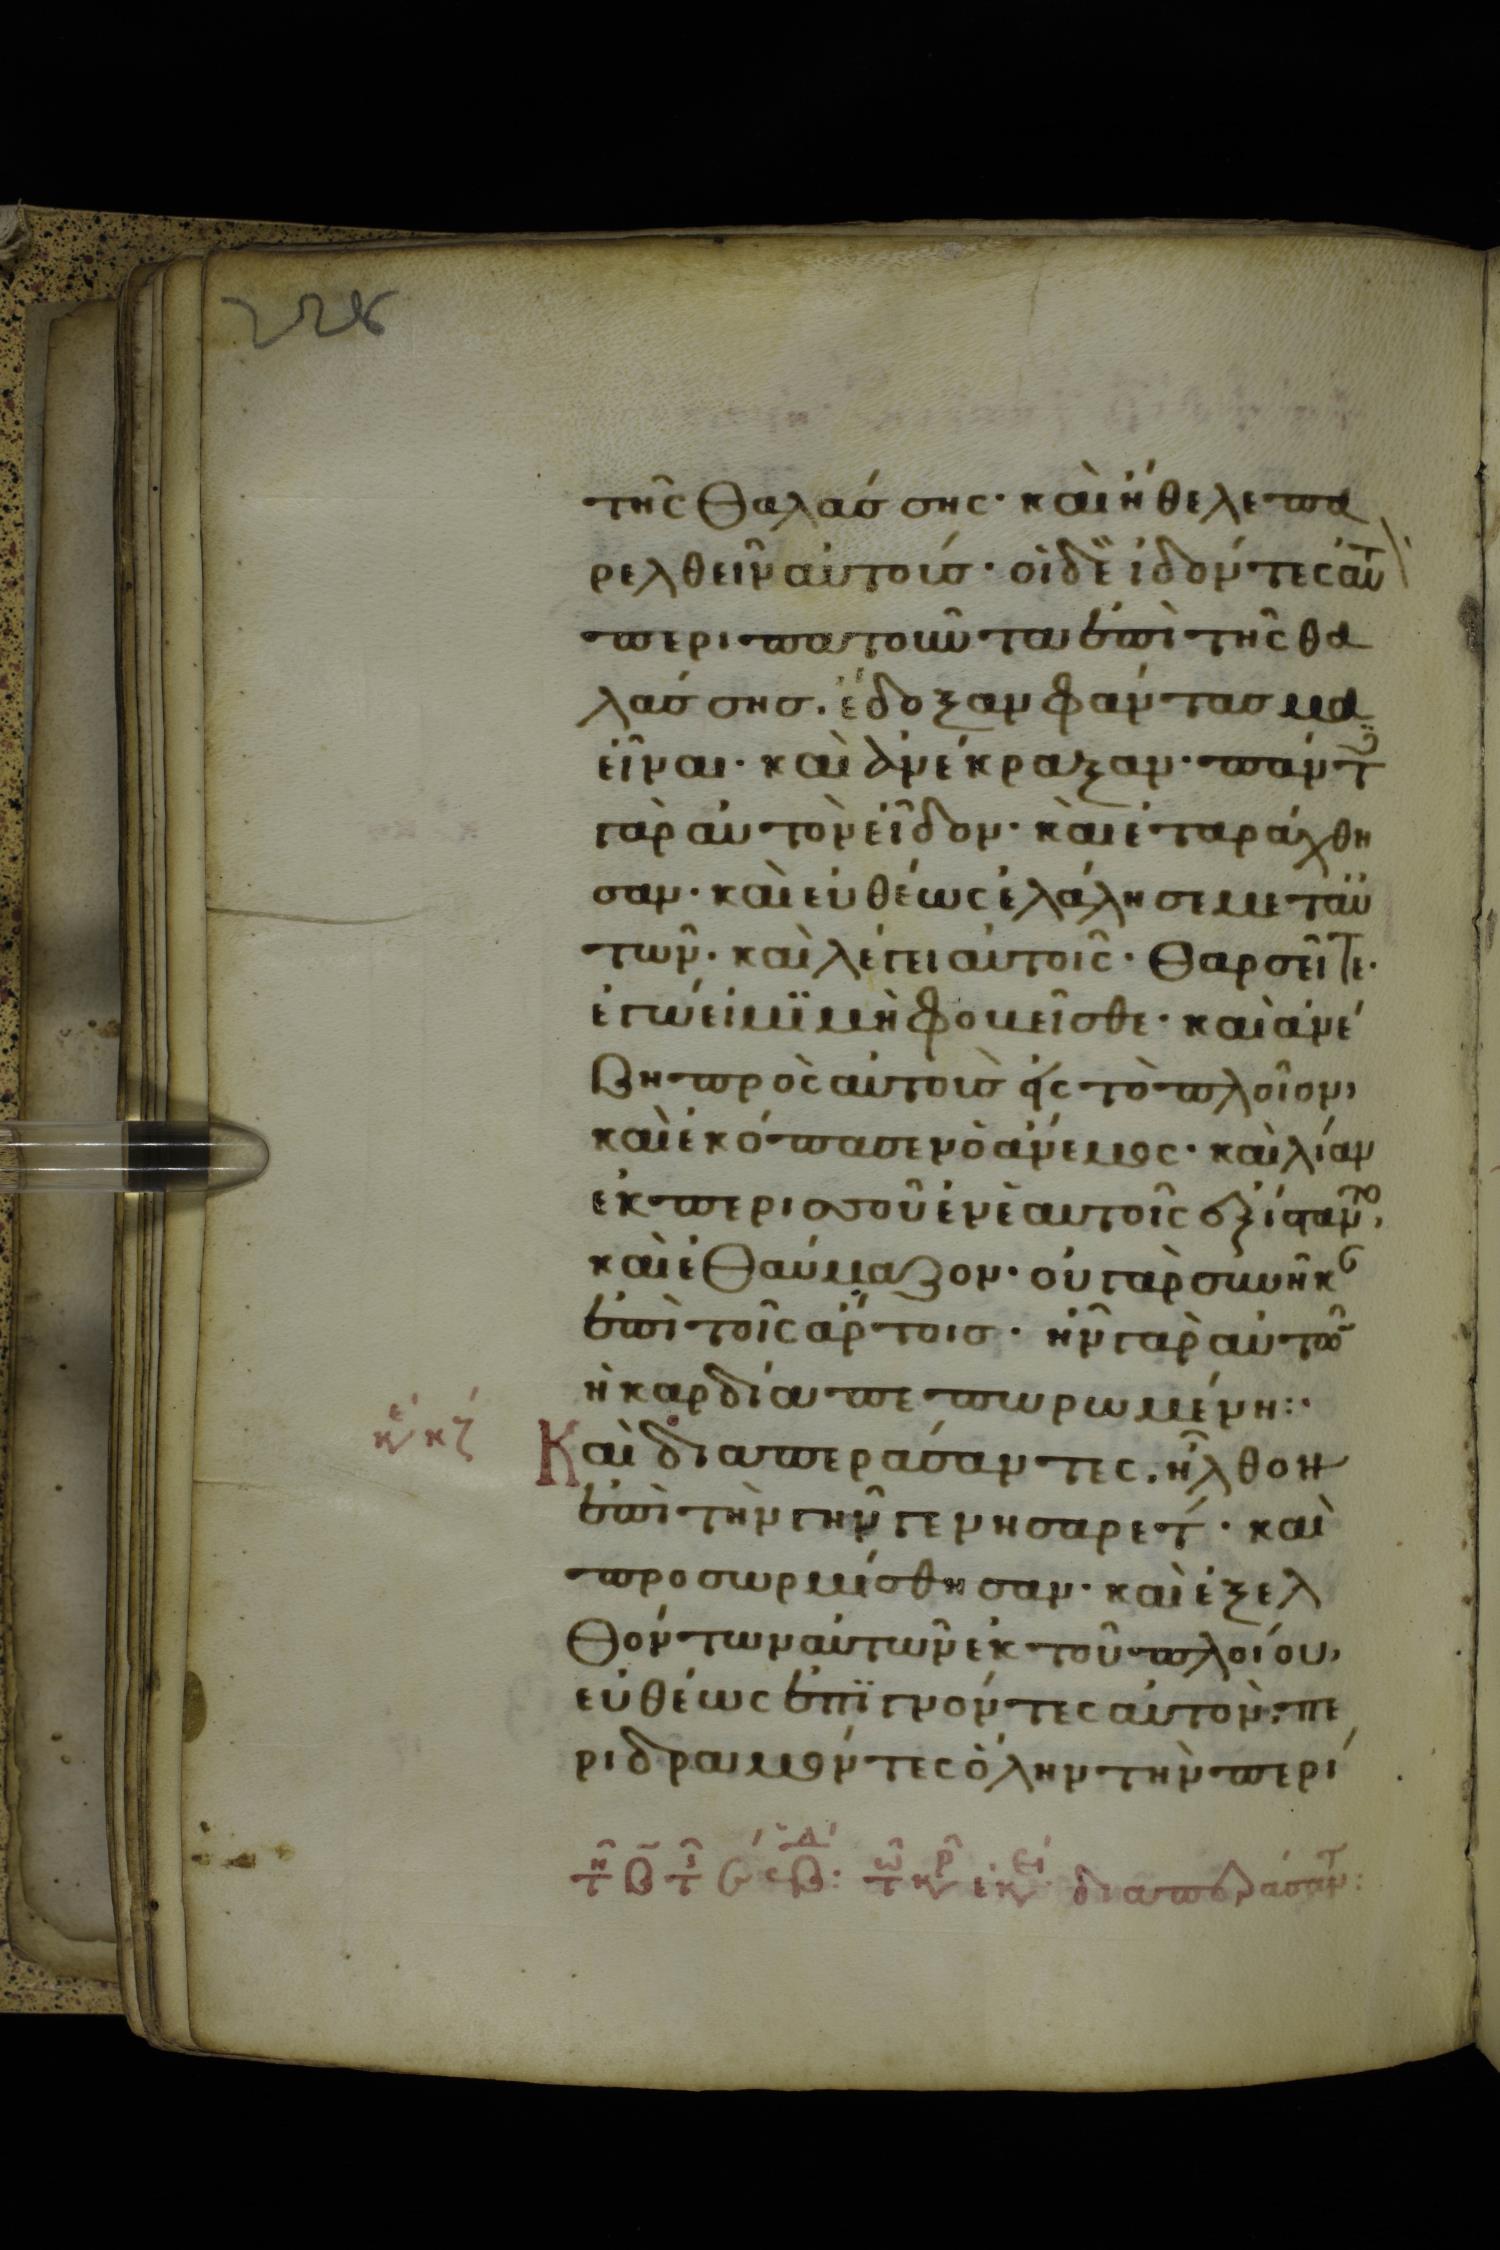 228
της θαλάσσης· καὶ ἤθελε πα
ρελθεῖν αὐτούσ· οἱ δὲ ἰδόντες αὐτ
περιπατοῦντα ἐπὶ τῆς θα
λάσσησ. ἔδοξαν φάντασμα
εἶναι· καὶ ἀνέκραξαν· πάντ
γὰρ αὐτὸν εἶδον· καὶ ἐταράχθη
σαν· καὶ εὐθέως ἐλάλησε μεταὐ
τῶν· καὶ λέγει αὐτοῖς· Θαρσεῖτε·
ἐγώ εἰμϊ μὴ φοβεῖσθε· καὶ ἀνέ
βη πρὸς αὐτοὺσ εἰς τὸ πλοῖον,
καὶ ἐκόπασεν ὁ ἄνεμος· καὶ λίαν
ἐκ περισσοῦ ἐν ἑαυτοῖς ἐξίσταντο,
καὶ ἐθαύμαζον· οὐ γὰρ συνῆκ
ἐπὶ τοῖς ἄρτοισ· ἦν γὰρ αὐτῶν
ἡ καρδία πεπωρωμένη:·
Καὶ διαπεράσαντες. ἦλθον
ἐπὶ τὴν γῆν γενησαρέτ· καὶ
προσωρμίσθησαν· καὶ ἐξελ
θόντων αὐτῶν ἐκ τοῦ πλοίου,
εὐθέως ἐπϊγνόντες αὐτὸν, πε
ριδραμόντες ὅλην τὴν περί